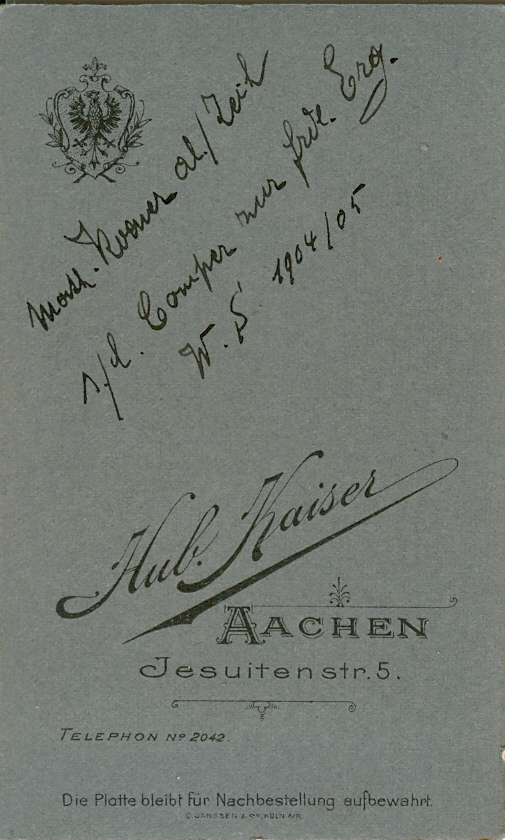 Math. Kremer al./Zeih
s/l. Comper zur frdl. Erg.
W. S 1904/05
Hub. Kaiser
AACHEN
Jesuitenstr. 5.
TELEPHON Nº 2042.
Die Platte bleibt für Nachbestellung aufbewahrt.
C. JANSSEN & Co, KÖLN A/R.